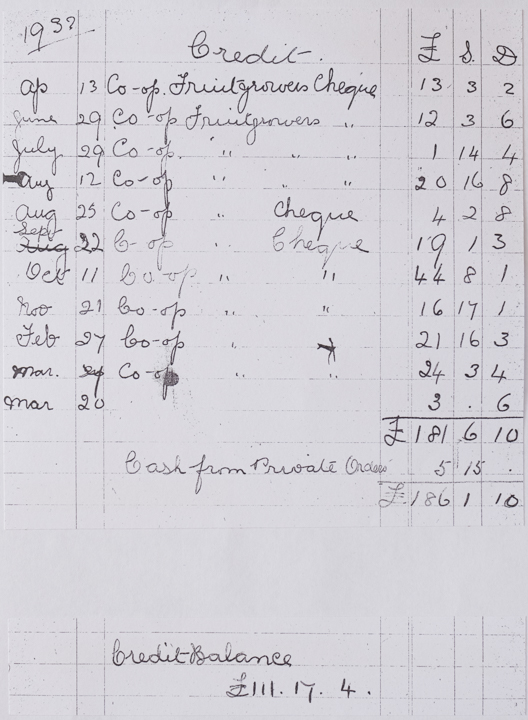 1932
Credit. £ S. D
Ap 13 Co-op. Fruitgrowers Cheque 13 3 2
June 29 Co-op Fruitgrowers " 12 3 6
July 29 Co-op. " " " 1 14 4
Aug 12 Co-op " " " 20 16 8
Aug 25 Co-op " Cheque 4 2 8
Sept
Aug 22 Co-op " Cheque 19 1 3
Oct 11 Co-op " " 44 8 1
Nov 21 Co-op " " 16 17 1
Feb 27 Co-op " 21 16 3
Mar. Co-op " " 24 3 4
Mar 20 3 . 6
£ 181 6 10
Cash from Private Orders 5 15 .
£ 186 1 10
Credit Balance
£111. 17. 4.